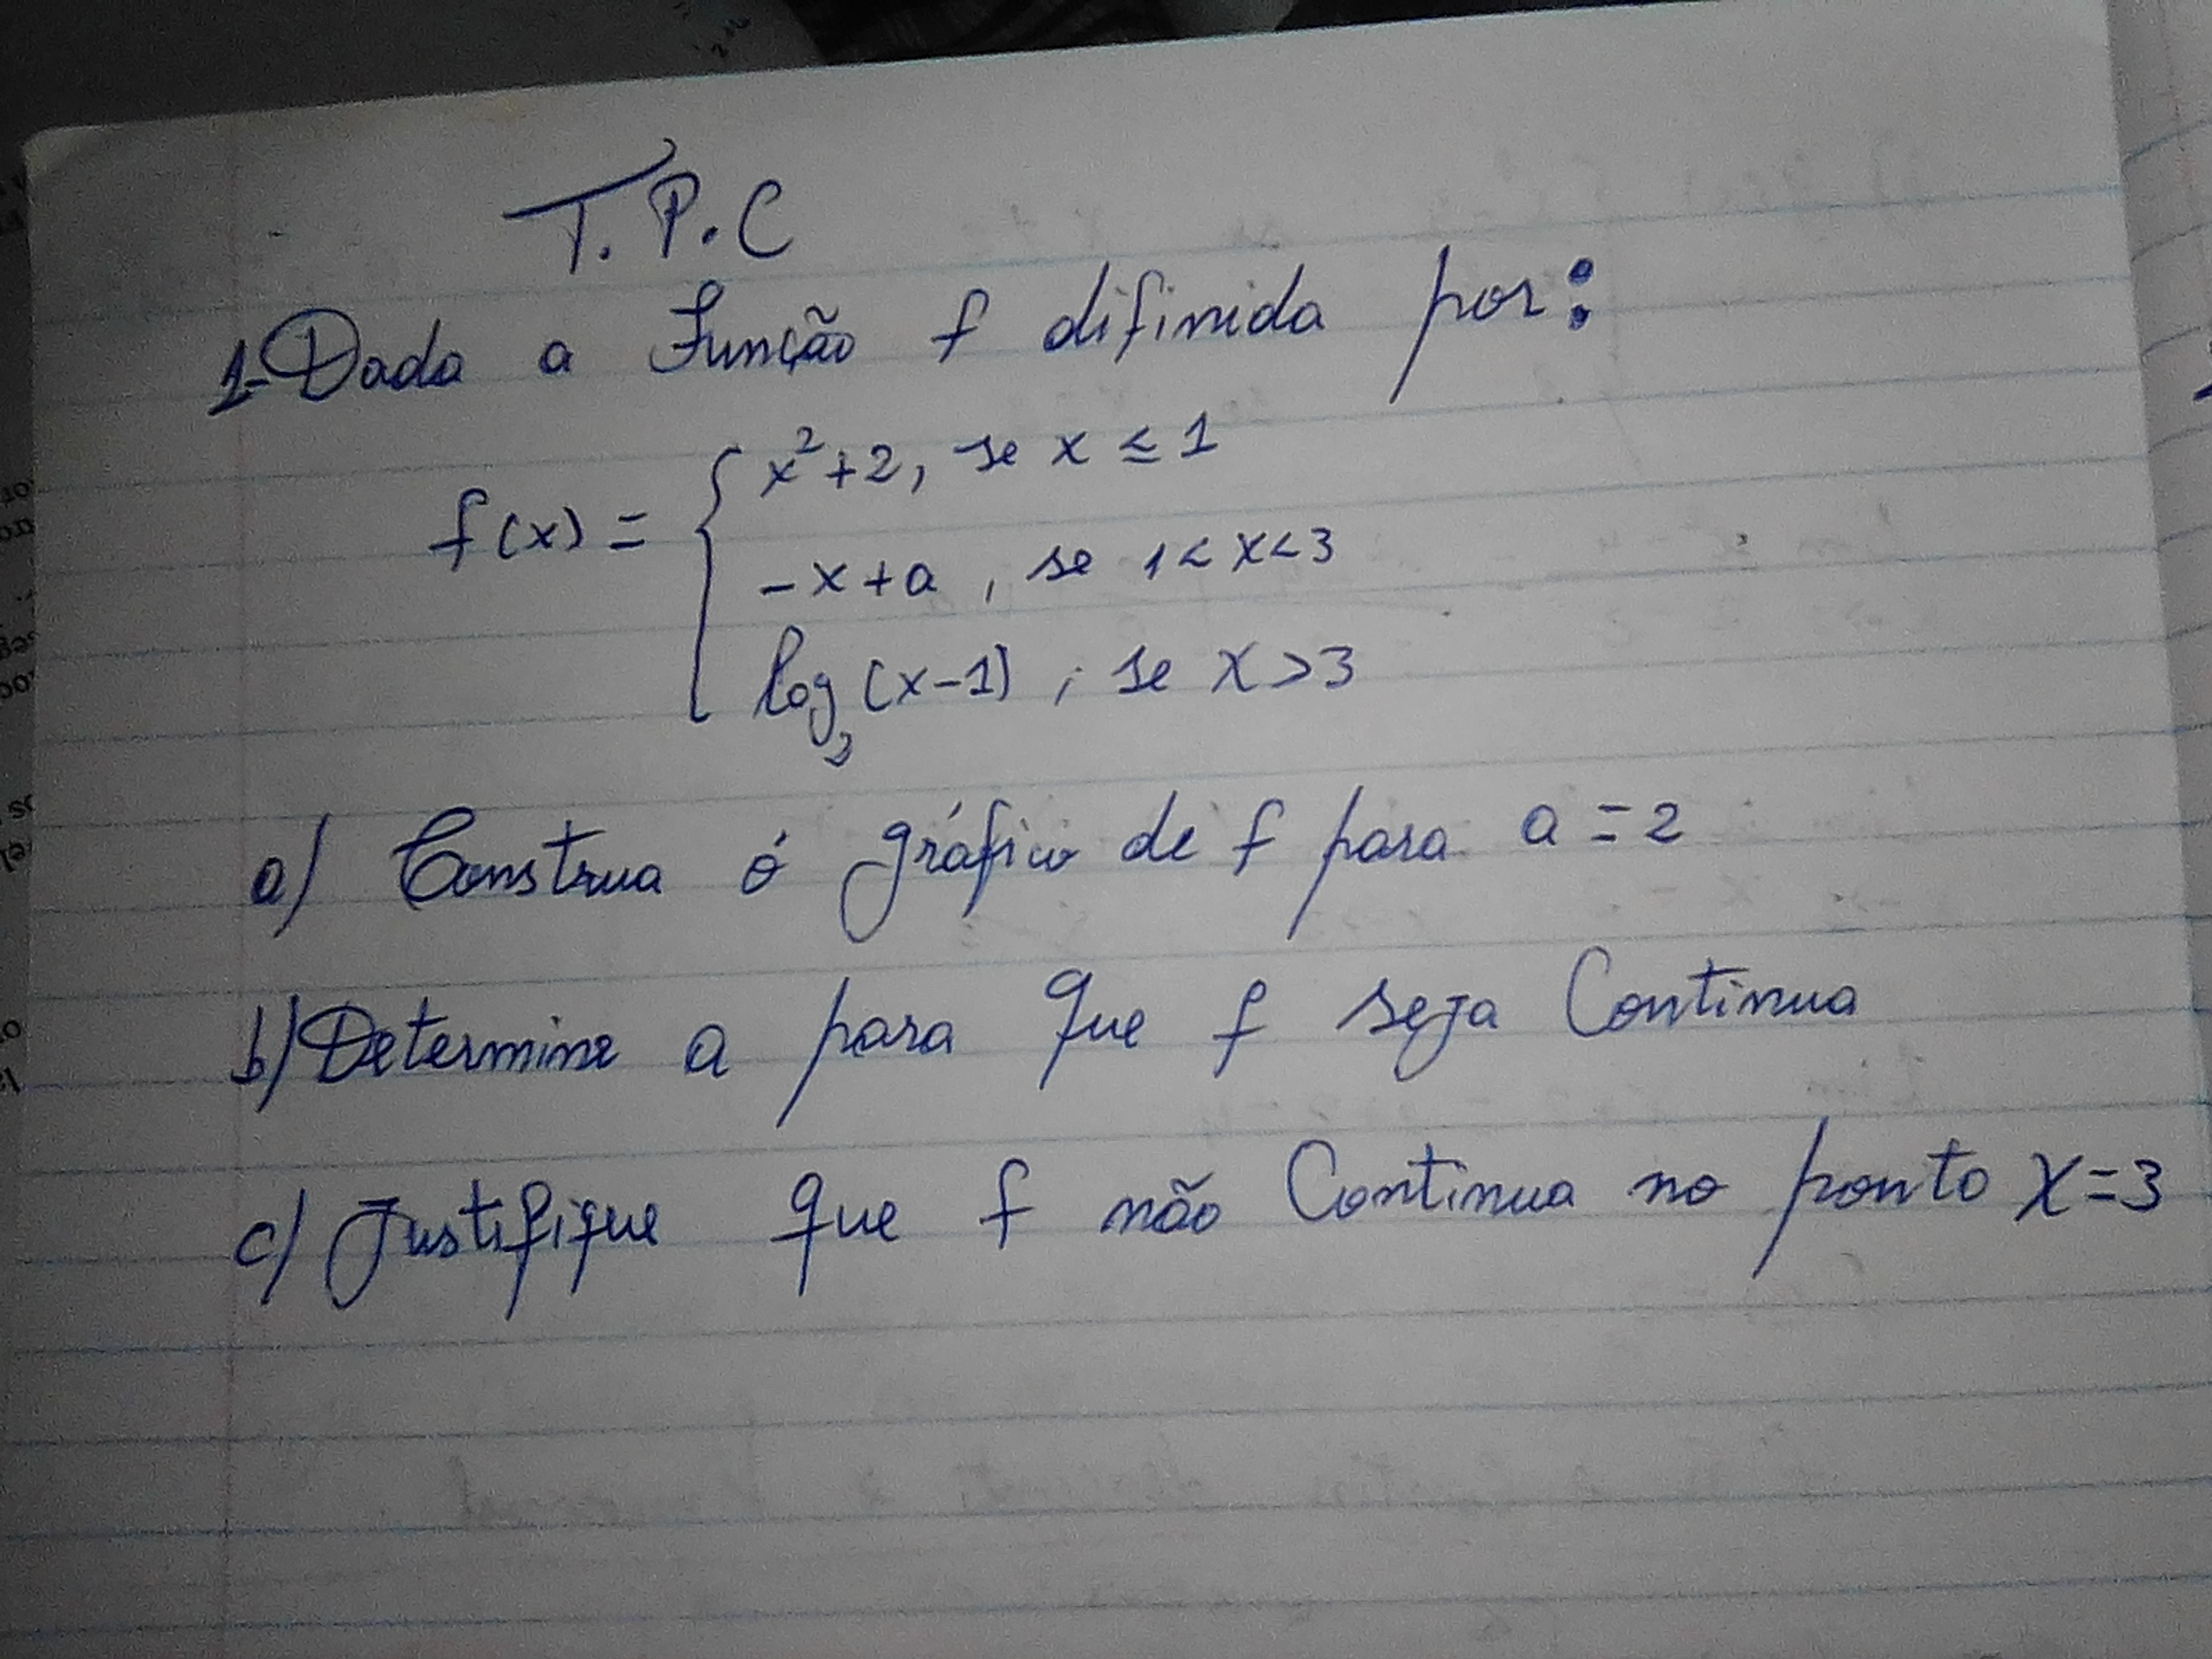 T.P.C
1-Dada a Função f difinida por:
f(x) = { x²+2, se x ≤ 1
-x+a , se 1<x<3
log₃(x-1) , se x>3
a) Construa ó gráfico de f para a = 2
b) Determine a para que f seja Continua
c) Justifique que f não Continua no ponto x=3